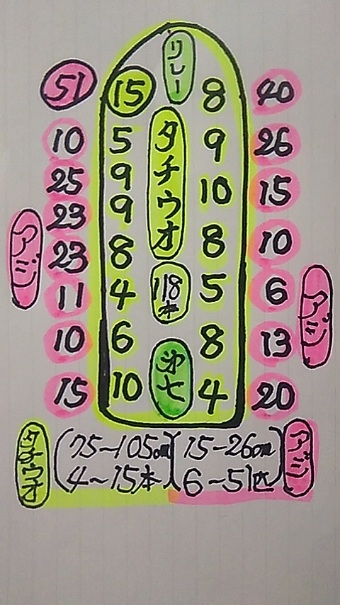 リレー
51 15 8 40
10 5 9 26
25 9 10 15
23 9 8 10
23 8 5 6
11 4 8 13
10 6 4 20
15 10
タチウオ
118本
アジ
アジ
タチウオ 75~105cm 15-26cm アジ
4~15本 6~51匹